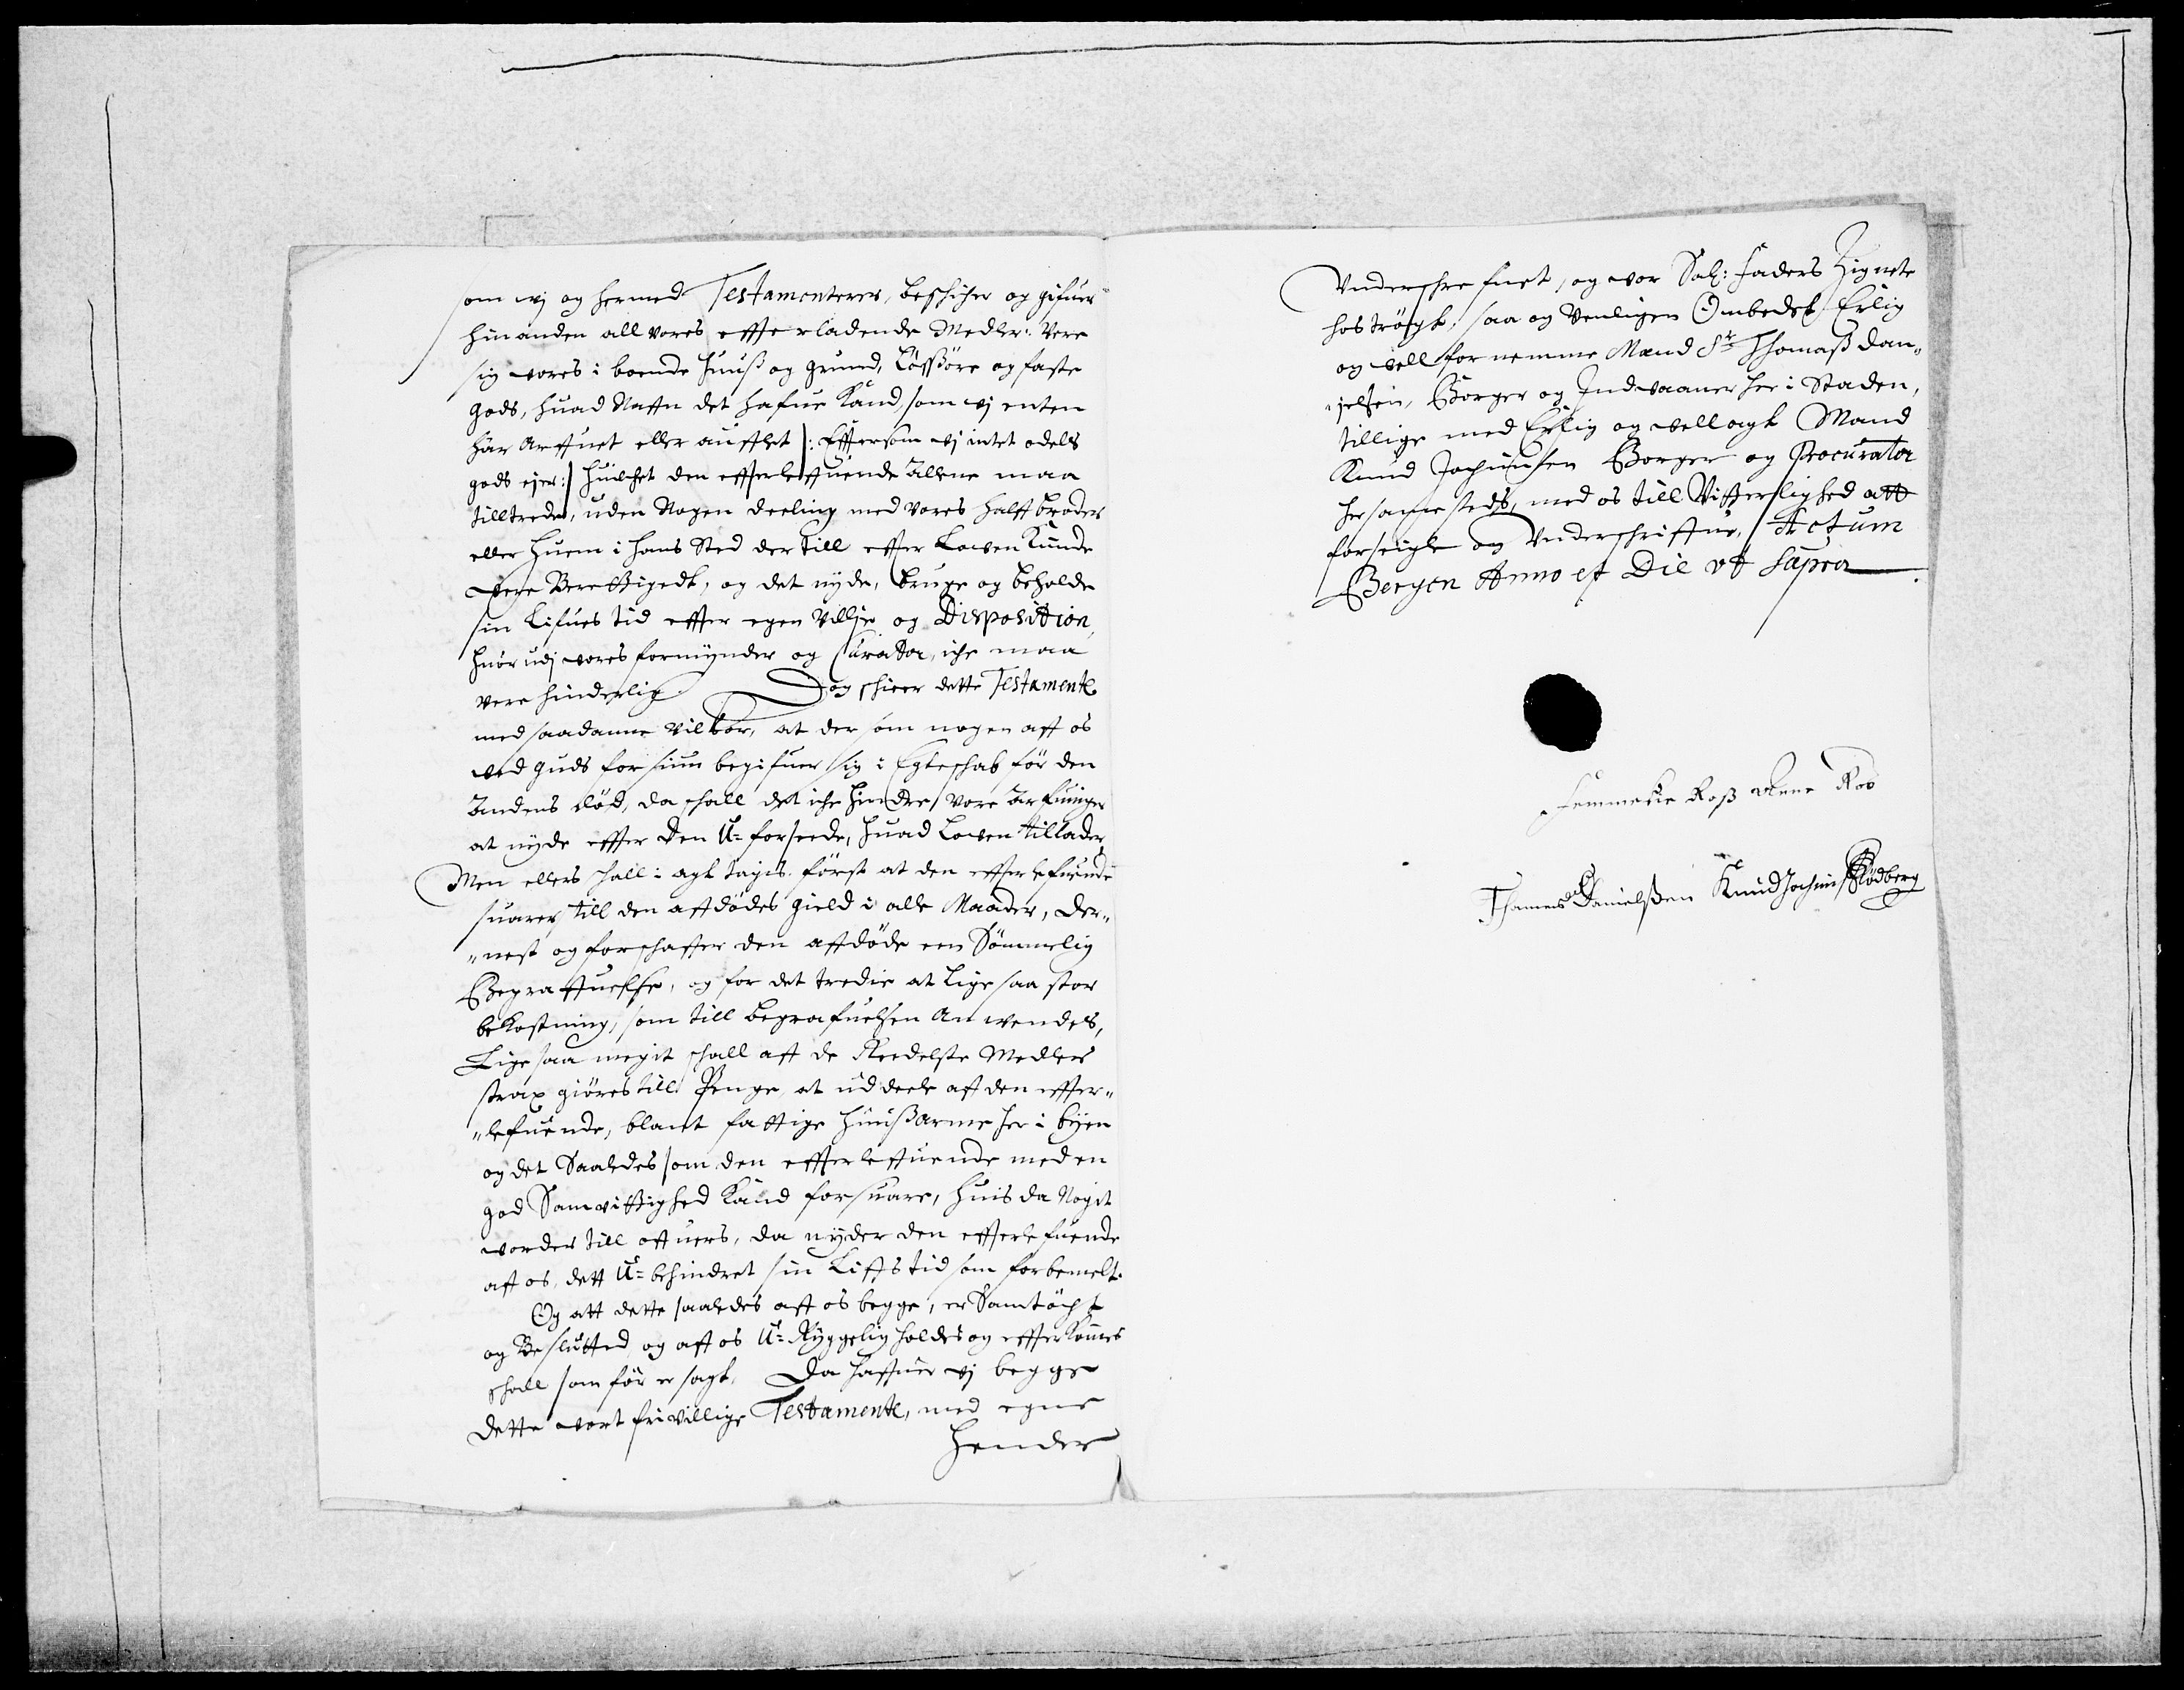 som wj og hermed Testamenterer, beschicher og gifuer
hinanden all vores effterladende Medler: Vere
sig vores i boende Huuß og grund, Lößßöre og faste
gods, huad Nafn det hafue Kand, som wj enten
har Arffuet eller aufflet |: Effterson wj intet odels
gods ejer :| huilchet den effterleffuende Allene maa
tilltrede, uden Nogen deeling med vores halff broder
eller huem i hans Sted der till effter Lowen Kunde
vere Berettiget, og det nyde, bruge og beholde
sin Lifues tid effter egen Villje og Disposition,
huor udj vores formynder og Curator, iche maa
vere hinderlig. Dog scheer dette Testamente
med saadanne vilkor, at der som nogen aff os
ved guds forsiun begifuer sig i Egteschab för den
Andens död, da schall det iche hindre vore Arfuinger
at nyde effter den U=forseede, huad Lowen tillader
Men ellers schall i agt tagis först at den effterlefuende
suarer till den afdödes gield i alle Maader, der„
„nest og forschaffer den affdöde een Sömmelig
Begraffuelsse, og for det tredie at Lige saa stor
bekostning, som till begrafuelsen Anwendes,
Lige saa megit schall aff de Reedeste Medler
strax giöres till Penge, at uddeele af den effter„
„lefuende, blant fattige Huußarme her i byen
og det Saaledes som den effterleffuende med en
god Samvittighed Kand forsuare, huis da Nogit
worder till offuers, da nyder den effterlefuende
af os, dett U=behindret sin Liffs tid som forbemelt.
Og att dette saaledes aff os begge, er Samtöcht
og Besluttid og aff os U=Ryggelig holdes og effterkommes
schall som för er sagt, Da haffuer wj begge
dette vort frivillige Testamente, med egne
Hender
Underschrefuet, og vor Sal: Faders Zignete
hoströgt, saa og Venligen Ombedet Erlig
og vell fornemme Mand Sr Thomaß Dan„
„ielsen, Borger og Indvaaner her i Staden,
tillige med Erlig og vellagt Mand
Knud Jochumsen Borger og Procurator
her samesteds, med os till Vitterlighed att
forseigle og Underschriffue, Actum
Bergen Anno et Die ut supra
Femmetie Roß Anne Ros
Thomas Danielßen Knud Jochims Rödberg